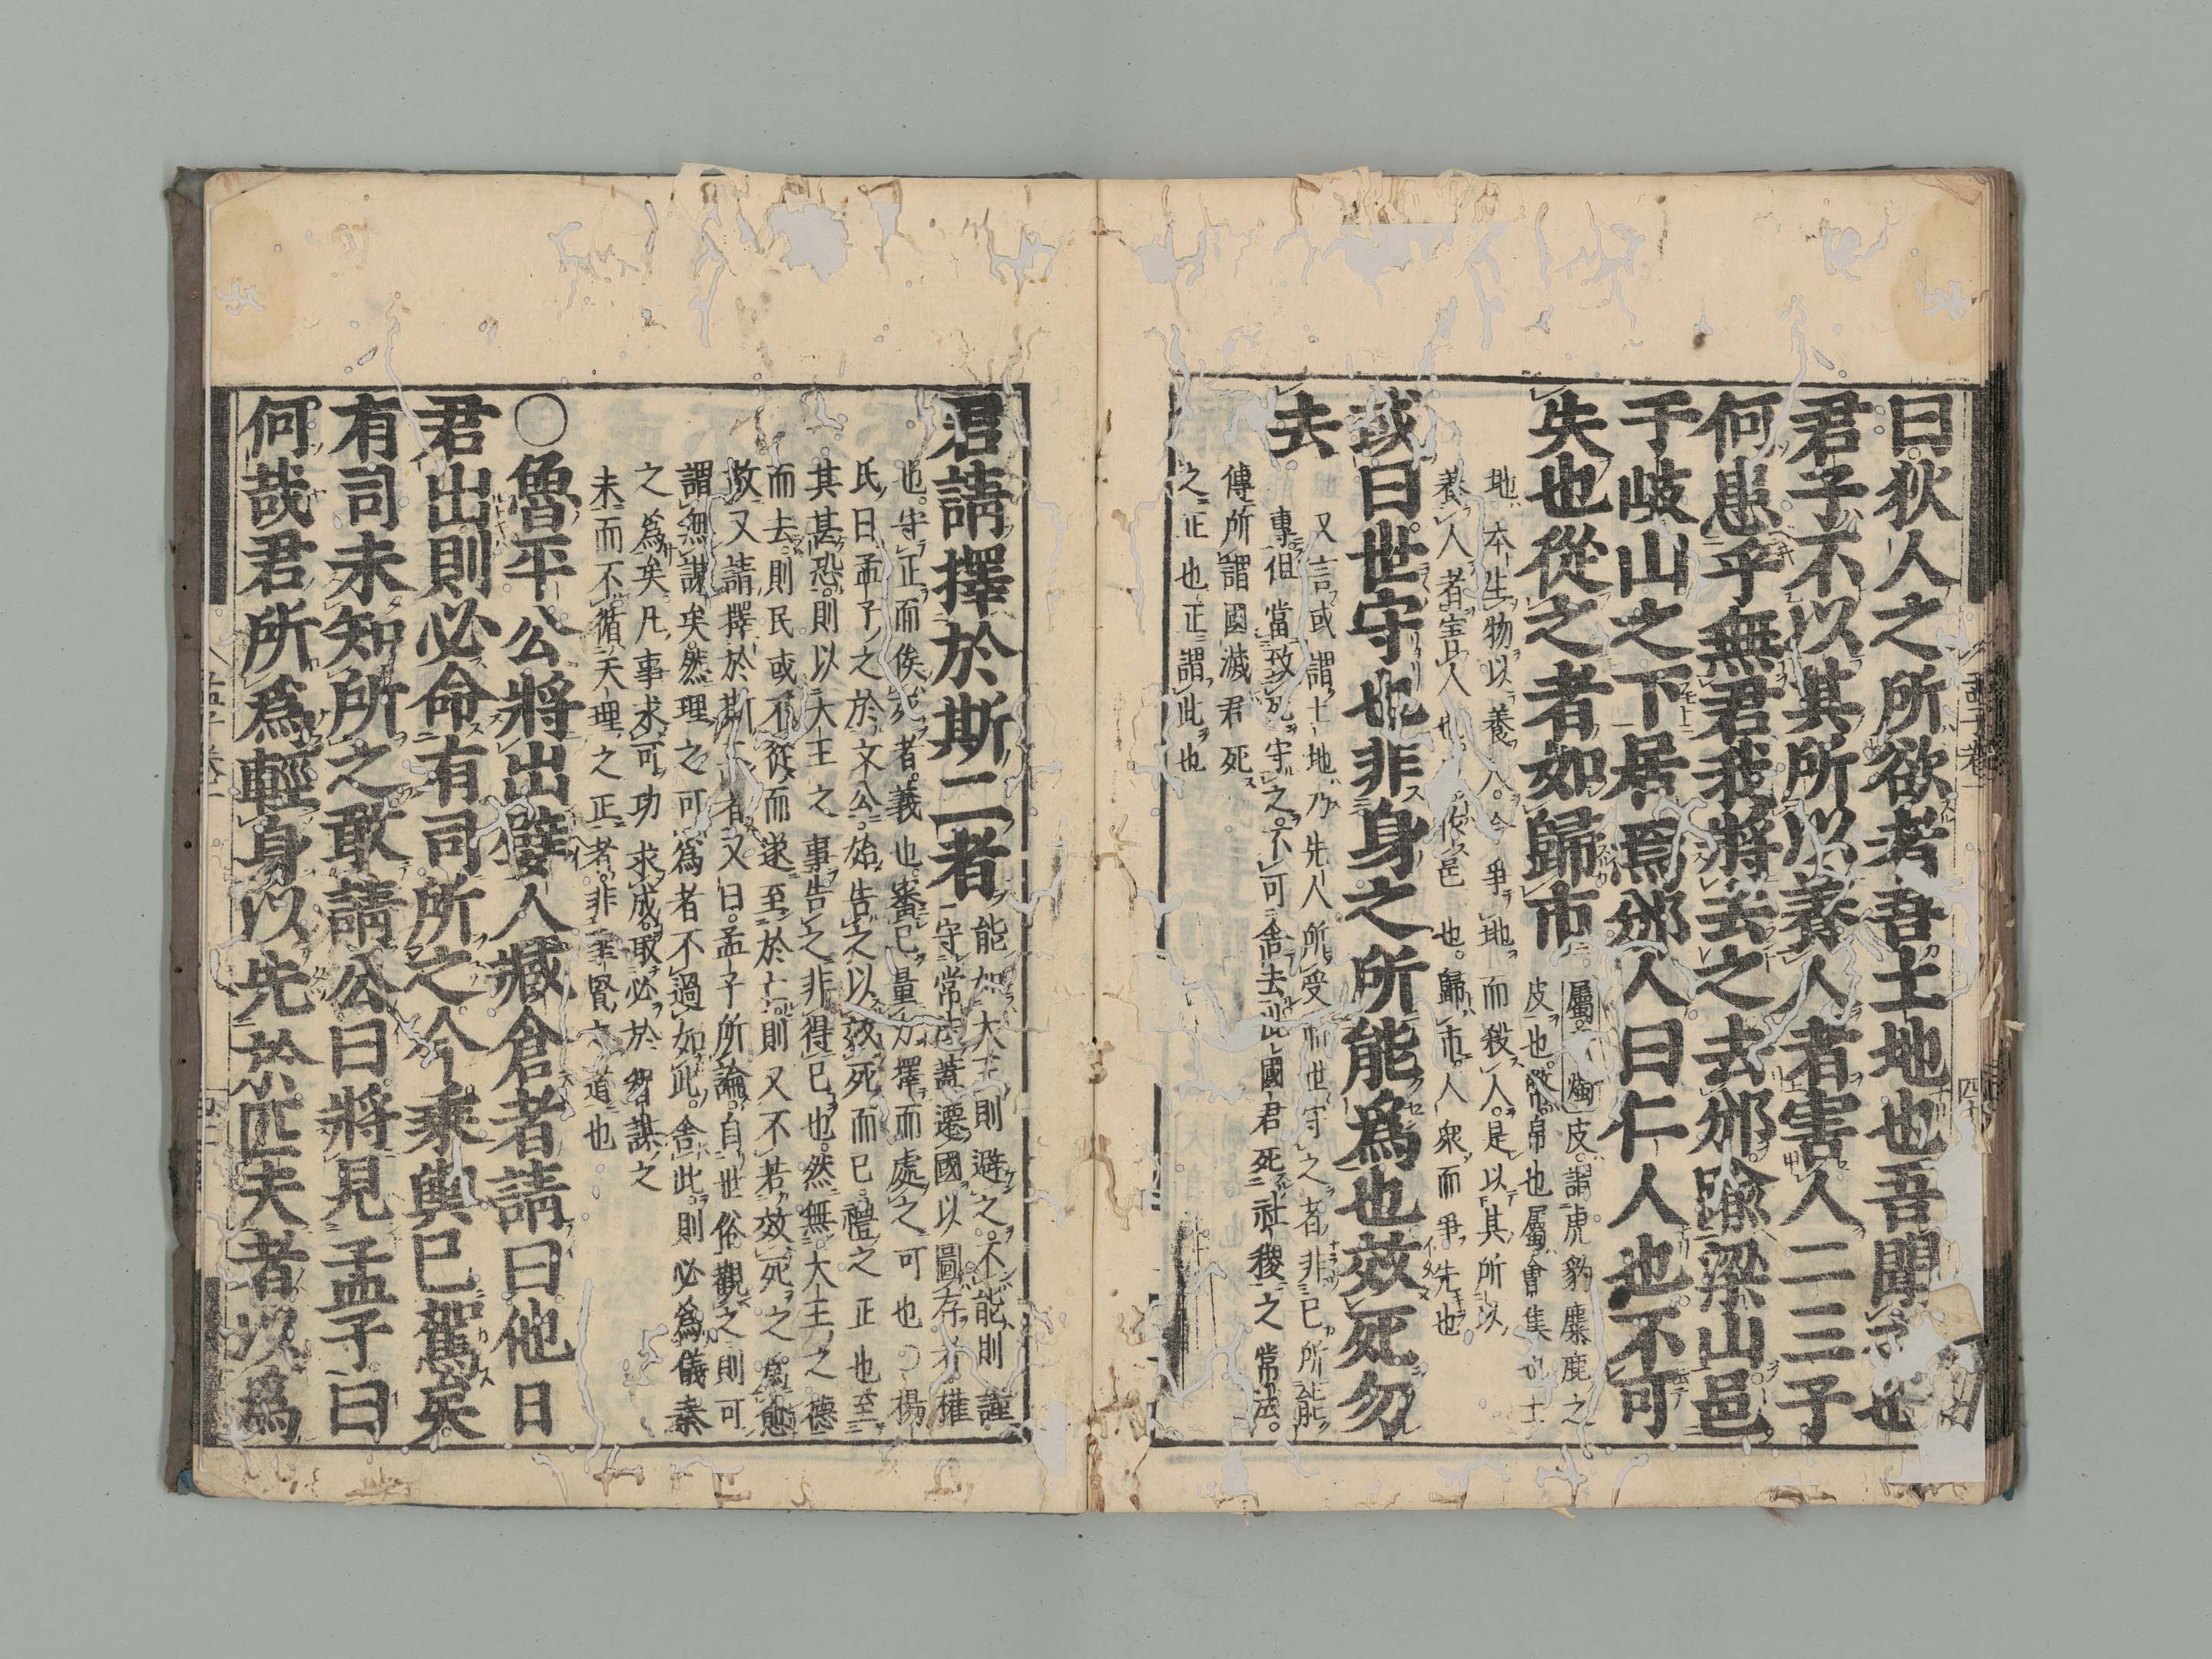 曰狄人之所欲者吾土地也吾聞之也
君子不以其所以養人者害人二三子
何患乎無君我將去之去邠踰梁山邑
于岐山之下居焉邠人曰仁人也不可
失也從之者如歸市
屬 燭 皮謂虎豹麋鹿之
皮也幣帛也屬會集也土
地本生物以養人今爭地而殺人是以其所以
養人者害人也作邑也歸市人衆而爭先也
或曰世守也非身之所能爲也效死勿
去
又言或謂土地乃先人所受而世守之者非己所能
專但當致死守之不可舍去此國君死社稷之常法
傳所謂國滅君死
之正也正謂此也
君請擇於斯二者
能如大王則避之不能則謹
守常法蓋遷國以圖存者權
也守正而俟死者義也審己量力擇而處之可也○楊
氏曰孟子之於文公始告之以效死而已禮之正也至
其甚恐則以大王之事告之非得已也然無大王之德
而去則民或不從而遂至於亡則又不若效死之爲愈
故又請擇於斯二者又曰孟子所論自世俗觀之則可
謂無謀矣然理之可爲者不過如此舍此則必爲儀秦
之爲矣凡事求可功求成取必於智謀之
末而不循天理之正者非聖賢之道也
○魯平公將出嬖人臧倉者請曰他日
君出則必命有司所之今乘輿已駕矣
有司未知所之敢請公曰將見孟子曰
何哉君所爲輕身以先於匹夫者以爲